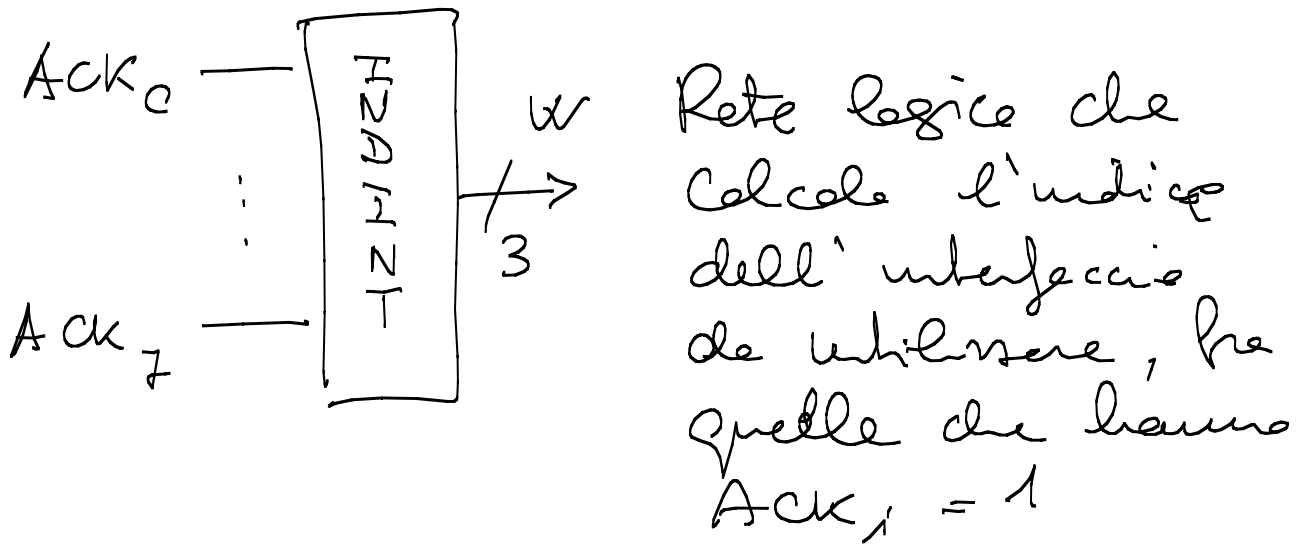 ACK0
W
⋮
3
ACK7
Rete logica che
calcola l'indice
dell'interfaccia
da utilizzare, fra
quelle che hanno
ACKi = 1